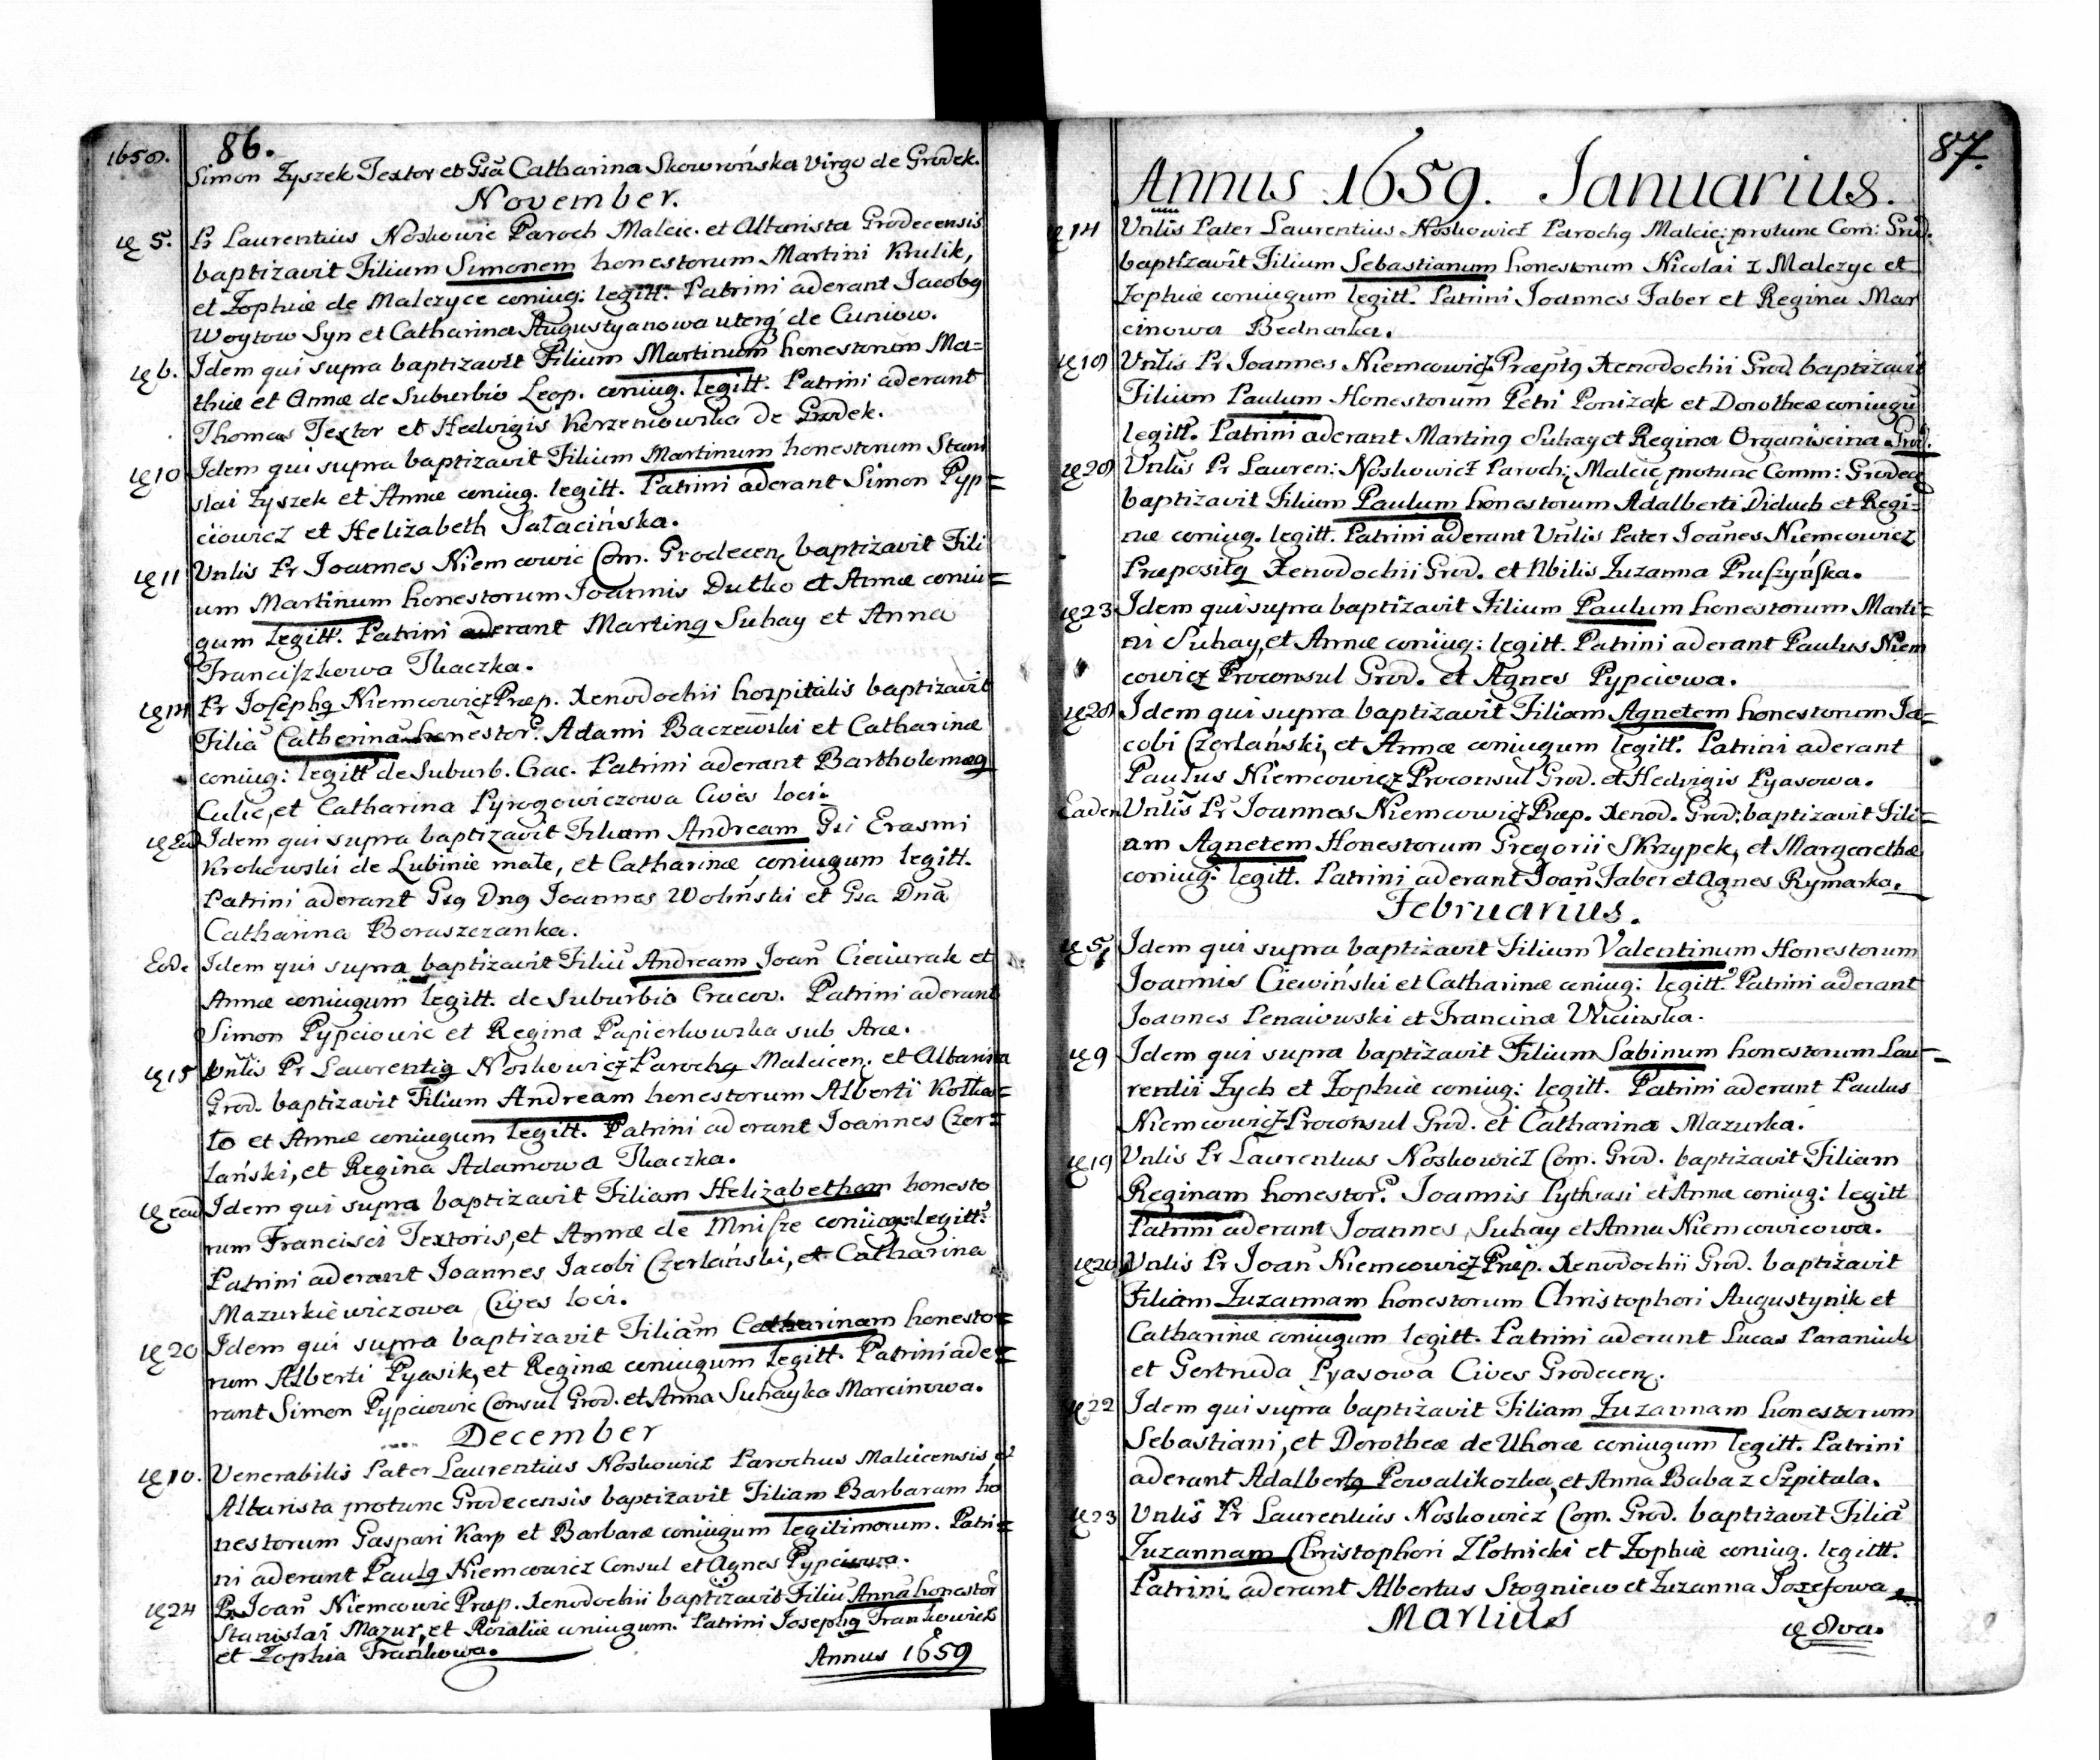 1658.
86.
Simon Zyszek Textor et Gsa Catharina Skowrońska virgo de Grodek.
November.
5. Pr Laurentius Noskowic Paroch Malcic. et Altarista Grodecensis
baptizavit Filium Simonem honestorum Martini Krulik,
et Zophiæ de Malczyce coniug: legitt. Patrini aderant Jacobq
Woytow Syn et Catharina Augustyanowa uterq de Cuniow.
6. Idem qui supra baptizavit Filium Martinum honestorum Ma=
thiæ et Annæ de Suburbio Leop. coniug. legitt. Patrini aderant
Thomas Textor et Hedvigis Korzeniowska de Grodek.
10 Idem qui supra baptizavit Filium Martinum honestorum Stani
slai Zyszek et Annæ coniug. legitt. Patrini aderant Simon Pyp=
ciowicz et Helizabeth Sałacińska.
11 Vnlis Pr Joannes Niemcowic Com. Grodecen, baptizavit Fili
um Martinum honestorum Joannis Dutko et Annæ coniu=
gum legitt. Patrini aderant Martinq Suhay et Anna
Franciszkowa Tkaczka.
14 Pr Josephq Niemcowicz Præp. Xenodochii hospitalis baptizavit
Filiā Catherinā honestor. Adami Baczewski et Catharinæ
coniug: legitt de Suburb. Crac. Patrini aderant Bartholomeq
Culic, et Catharina Pyrogowiczowa Cives loci.
Ead Idem qui supra baptizavit Filium Andream Gsi Erasmi
Krokowski de Lubinie małe, et Catharinæ coniugum legitt.
Patrini aderant Gsq Dnq Joannes Woliński et Gsa Dnā
Catharina Boraszczanka.
Eod. Idem qui supra baptizavit Filiū Andream Joan̄ Cieciurak et
Annæ coniugum legitt. de Suburbio Cracov. Patrini aderant
Simon Pypciowic et Regina Papierkowska sub Arce.
15 Vnlis Pr Laurentiq Noskowicz Parochq Malcicen, et Altarista
Grod. baptizavit Filium Andream honestorum Alberti Kołka=
to et Annæ coniugum legitt. Patrini aderant Joannes Czer=
lański, et Regina Adamowa Tkaczka.
ead Idem qui supra baptizavit Filiam Helizabetham honesto
rum Francisci Textoris, et Annæ de Mnisze coniug: legitt.
Patrini aderant Joannes Jacobi Czerlański, et Catharina
Mazurkiewiczowa Cives loci.
20 Idem qui supra baptizavit Filiam Catharinam honesto=
rum Alberti Pyasik, et Reginæ coniugum legitt. Patrini ade=
rant Simon Pypciowic Consul Grod. et Anna Suhayka Marcinowa.
December
10. Venerabilis Pater Laurentius Noskowicz Parochus Malcicensis et
Altarista protunc Grodecensis baptizavit Filiam Barbaram ho
nestorum Gaspari Karp et Barbaræ coniugum legitimorum. Patri=
ni aderant Paulq Niemcowicz Consul et Agnes Pypciowa.
24 Pr Joan̄ Niemcowic Præp. Xenodochii baptizavit Filiā Annā honestor
Stanislai Mazur, et Rozaliæ coniugum. Patrini Josephq Frankowicz
et Zophia Frankowa.
Annus 1659
87.
Annus 1659. Januarius.
14 Vnlis Pater Laurentius Noskowicz Parochq Malcic; protunc Com: Grod.
baptizavit Filium Sebastianum honestorum Nicolai z Malczyc et
Zophiæ coniugum legitt. Patrini Joannes Faber et Regina Mar
cinowa Bednarka.
19 Vnlis Pr Joannes Niemcowicz Præptq Xenodochii Grod baptizavit
Filium Paulum Honestorum Petri Ponizak et Dorotheæ coniugū
legitt. Patrini aderant Martinq Suhay et Regina Organiscina Grod.
20 Vnlis Pr Lauren: Noskowicz Paroch; Malcic, protunc Comm: Grodec
baptizavit Filium Paulum honestorum Adalberti Diduch et Regi=
næ coniug. legitt. Patrini aderant Vnlis Pater Joānes Niemcowicz
Præpositq Xenodochii Grod. et Nbilis Zuzanna Pruszyńska.
23 Idem qui supra baptizavit Filium Paulum honestorum Marti=
ni Suhay, et Annæ coniug: legitt. Patrini aderant Paulus Niem
cowicz Proconsul Grod. et Agnes Pypciowa.
28 Idem qui supra baptizavit Filiam Agnetem honestorum Ja=
cobi Czerlański, et Annæ coniugum legitt. Patrini aderant
Paulus Niemcowicz Proconsul Grod. et Hedvigis Pyasowa.
Eadem Vnlis Pr Joannes Niemcowicz Præp. Xenod. Grod: baptizavit Fili=
am Agnetem Honestorum Gregorii Skrzypek, et Margarethæ
coniug: legitt. Patrini aderant Joan̄ Faber et Agnes Rymarka.
Februarius.
5 Idem qui supra baptizavit Filium Valentinum Honestorum
Joannis Ciewiński et Catharinæ coniug: legitt. Patrini aderant
Joannes Penaiowski et Francina Vlicinska.
9 Idem qui supra baptizavit Filium Sabinum honestorum Lau=
rentii Zych et Zophiæ coniug: legitt. Patrini aderant Paulus
Niemcowicz Proconsul Grod. et Catharina Mazurka.
19 Vnlis Pr Laurentius Noskowicz Com. Grod. baptizavit Filiam
Reginam honestor. Joannis Pythrasi et Annæ coniug: legitt
Patrini aderant Joannes Suhay et Anna Niemcowicowa.
20 Vnlis Pr Joan̄ Niemcowicz Præp. Xenodochii Grod. baptizavit
Filiam Zuzannam honestorum Christophori Augustynik et
Catharinæ coniugum legitt. Patrini aderunt Lucas Paraniuk
et Gertruda Pyasowa Cives Grodecen.
22 Idem qui supra baptizavit Filiam Zuzannam honestorum
Sebastiani, et Dorotheæ de Uhorce coniugum legitt. Patrini
aderant Adalbertq Powalikozka, et Anna Baba z Szpitala.
23 Vnlis Pr Laurentius Noskowicz Com. Grod. baptizavit Filiā
Zuzannam Christophori Złotnicki et Zophiæ coniug. legittt.
Patrini aderant Albertus Stogniew et Zuzanna Jozefowa
Martius
8va.